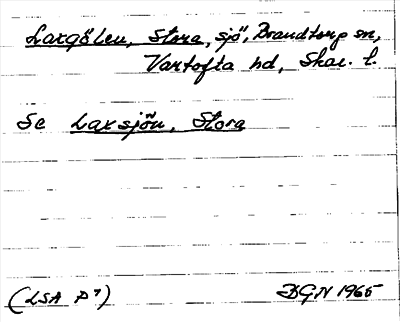 Laxgölen, Stora, sjö, Brandtorp sn,
Vartofta hd, Skar. l.
Se Laxsjön, Stora
(LSA P7) DGN 1965